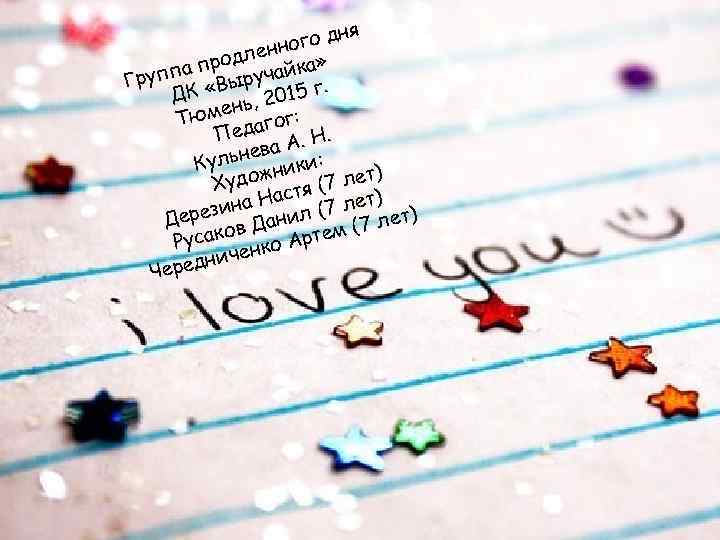 Группа продленного дня
ДК «Выручайка»
Тюмень, 2015 г.
Педагог:
Кульнева А. Н.
Художники:
Дерезина Настя (7 лет)
Русаков Данил (7 лет)
Чередниченко Артем (7 лет)
i love you